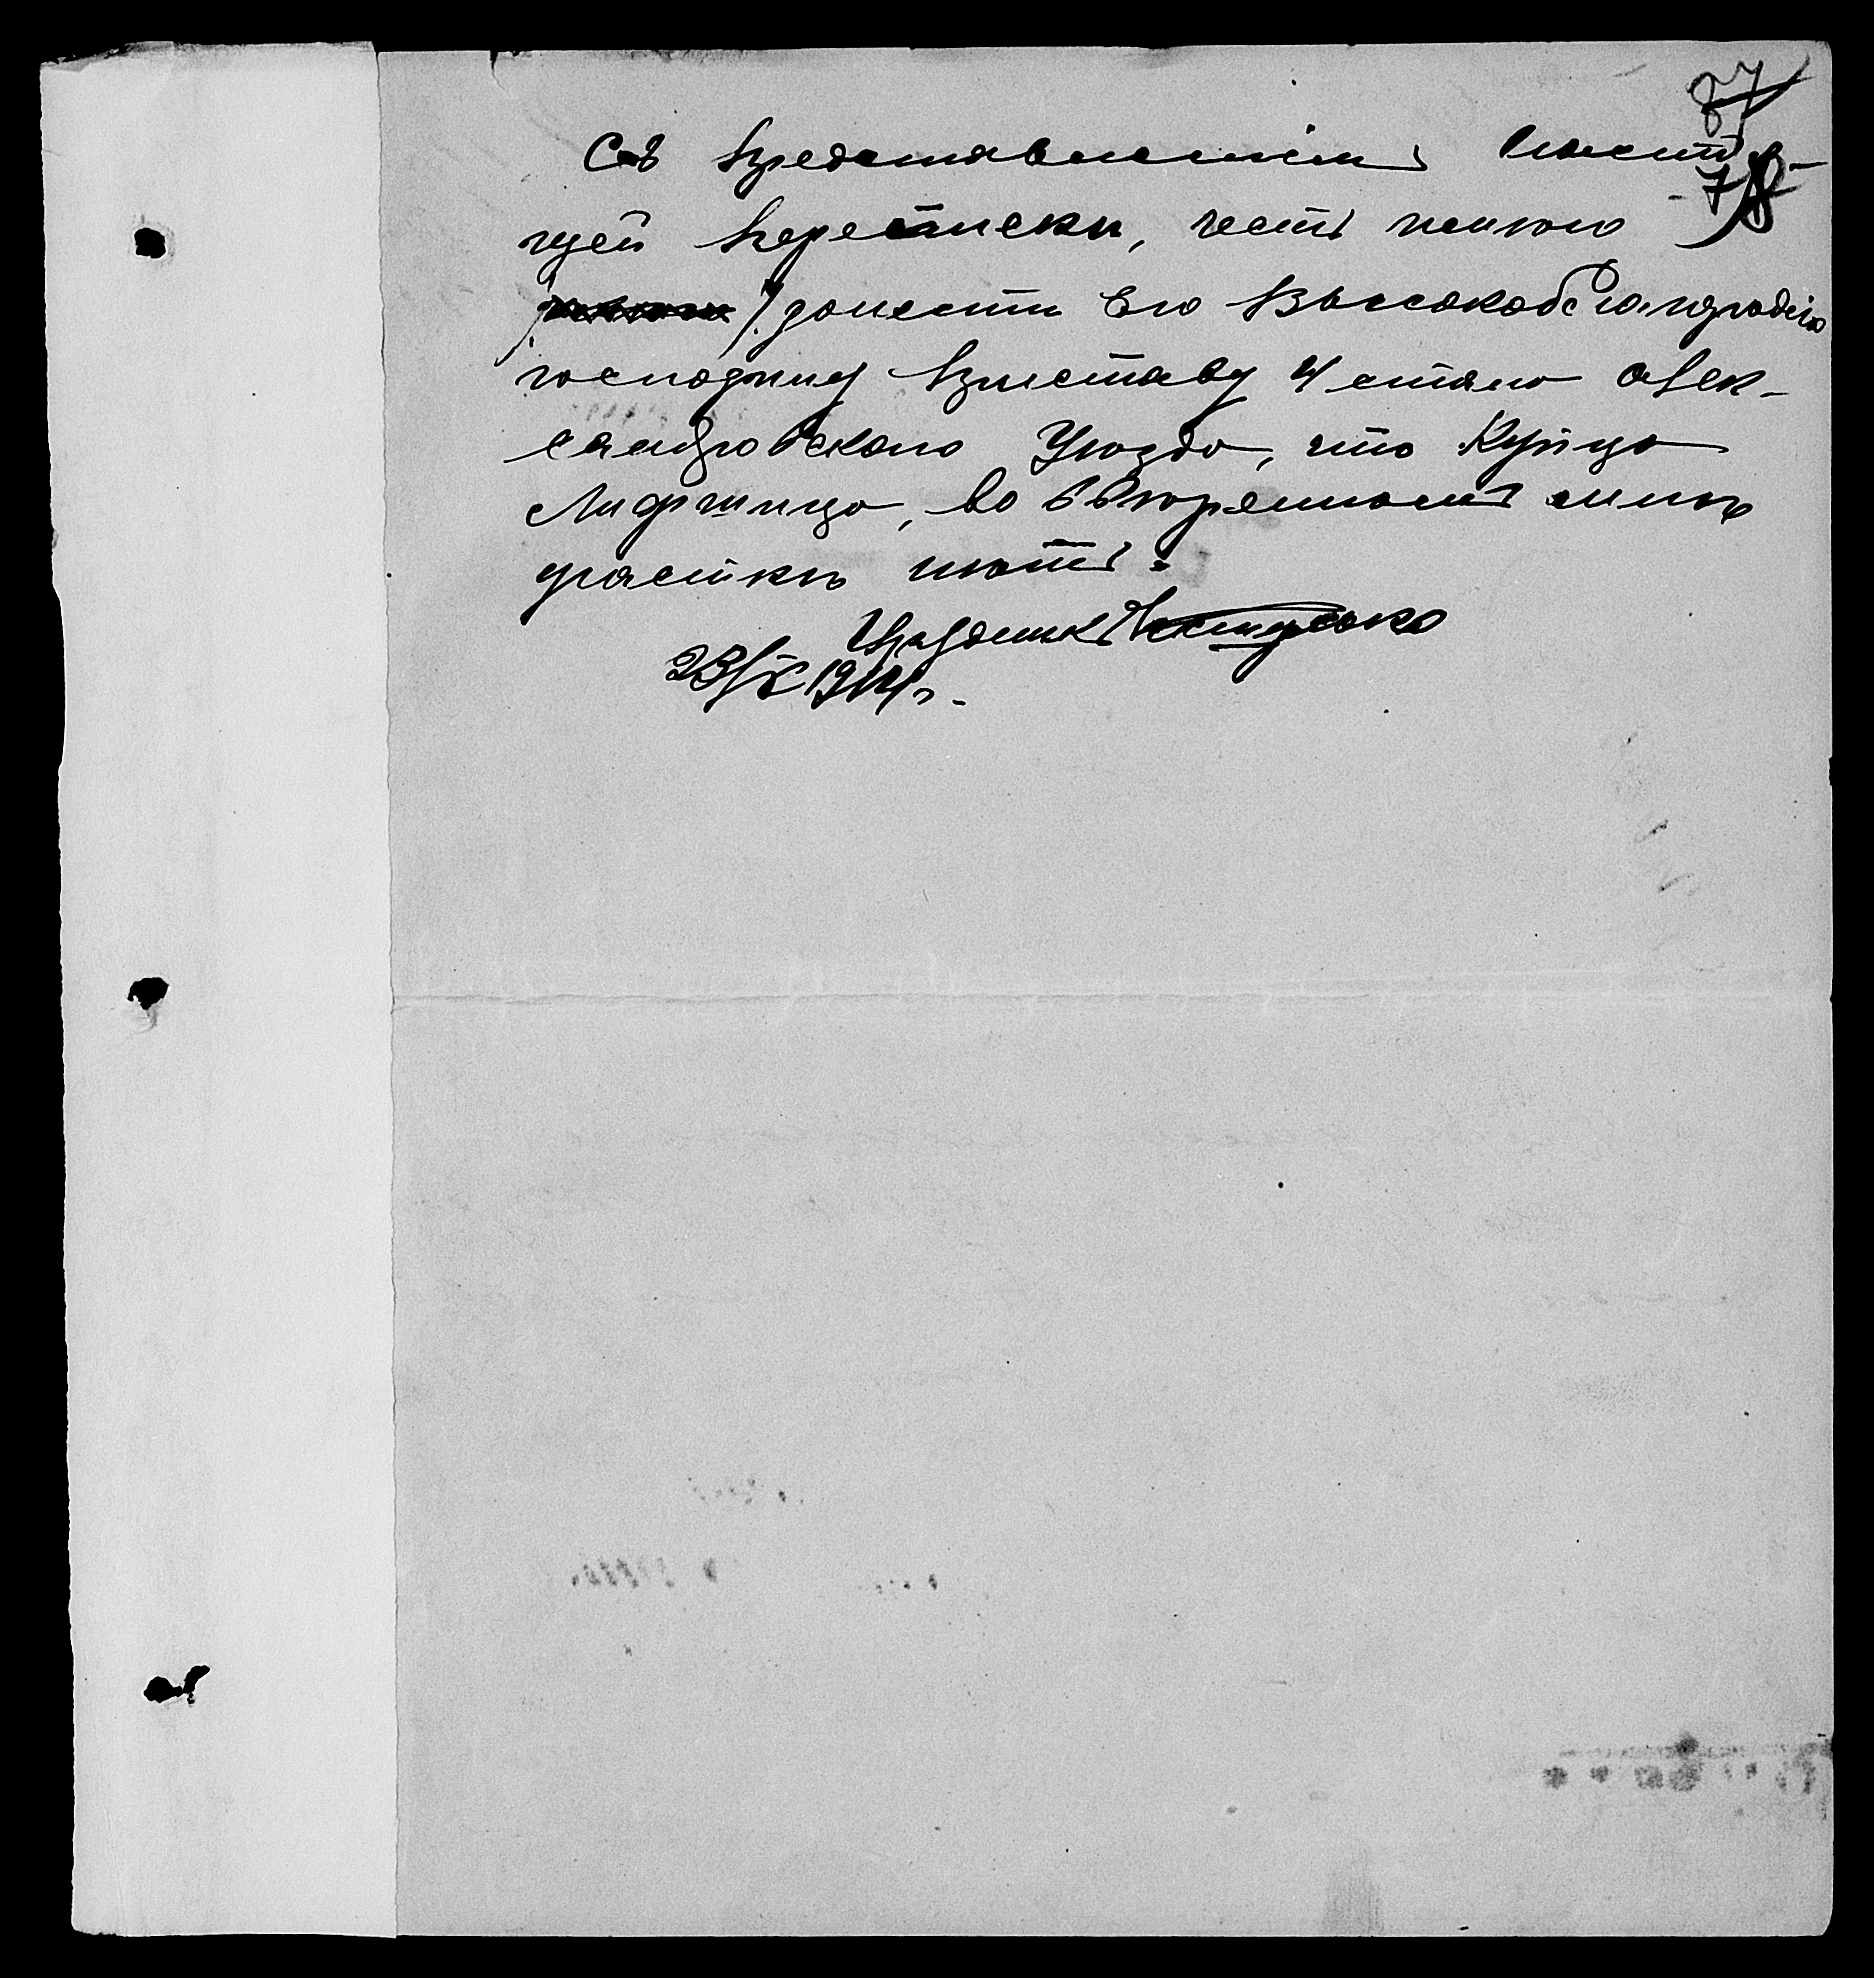 87
Съ представленіемъ настоя-
78
щей переписки, честь имѣю
донести Его Высокоблагородію
господину Приставу 4 стана Алек-
сандровскаго Уѣзда, что Купца
Лифшица, во ввѣренномъ мнѣ
участкѣ нѣтъ.
Урядникъ
23/X 1914 г.